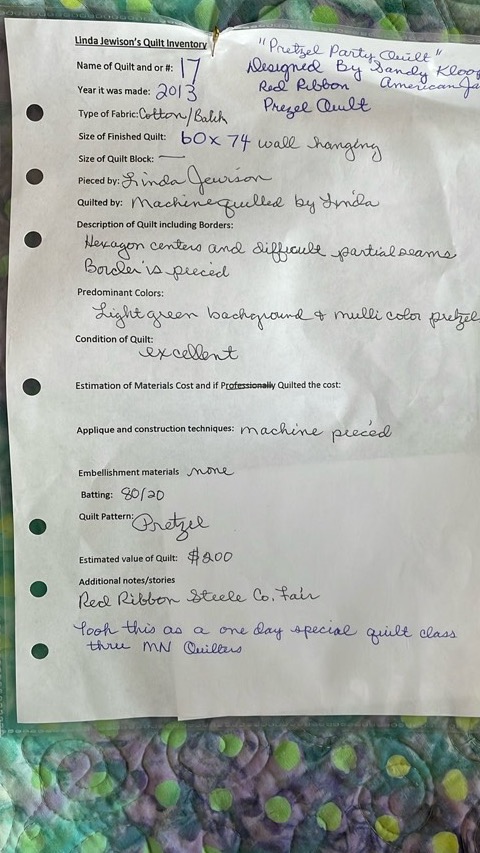 Linda Jewison's Quilt Inventory
"Pretzel Party Quilt"
Designed By Sandy Kloop
Red Ribbon American Ja
Prezel Quilt
Name of Quilt and or #: 17
Year it was made: 2013
Type of Fabric: Cotton/Batik
Size of Finished Quilt: 60x74 wall hanging
Size of Quilt Block: —
Pieced by: Linda Jewison
Quilted by: Machine quilled by Linda
Description of Quilt including Borders:
Hexagon centers and difficult partial seams
Border is pieced
Predominant Colors:
Light green background & multi color pretzel
Condition of Quilt:
excellent
Estimation of Materials Cost and if Professionally Quilted the cost:
Applique and construction techniques: machine pieced
Embellishment materials none
Batting: 80/20
Quilt Pattern: Pretzel
Estimated value of Quilt: $200
Additional notes/stories
Red Ribbon Steele Co. Fair
Took this as a one day special quilt class
thru MN Quilters